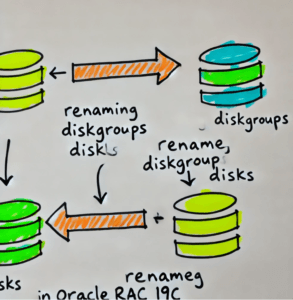 renaming
diskgroups
disks
diskgroups
rename,
diskgroup
disks
renameg
in Oracle RAC 19C